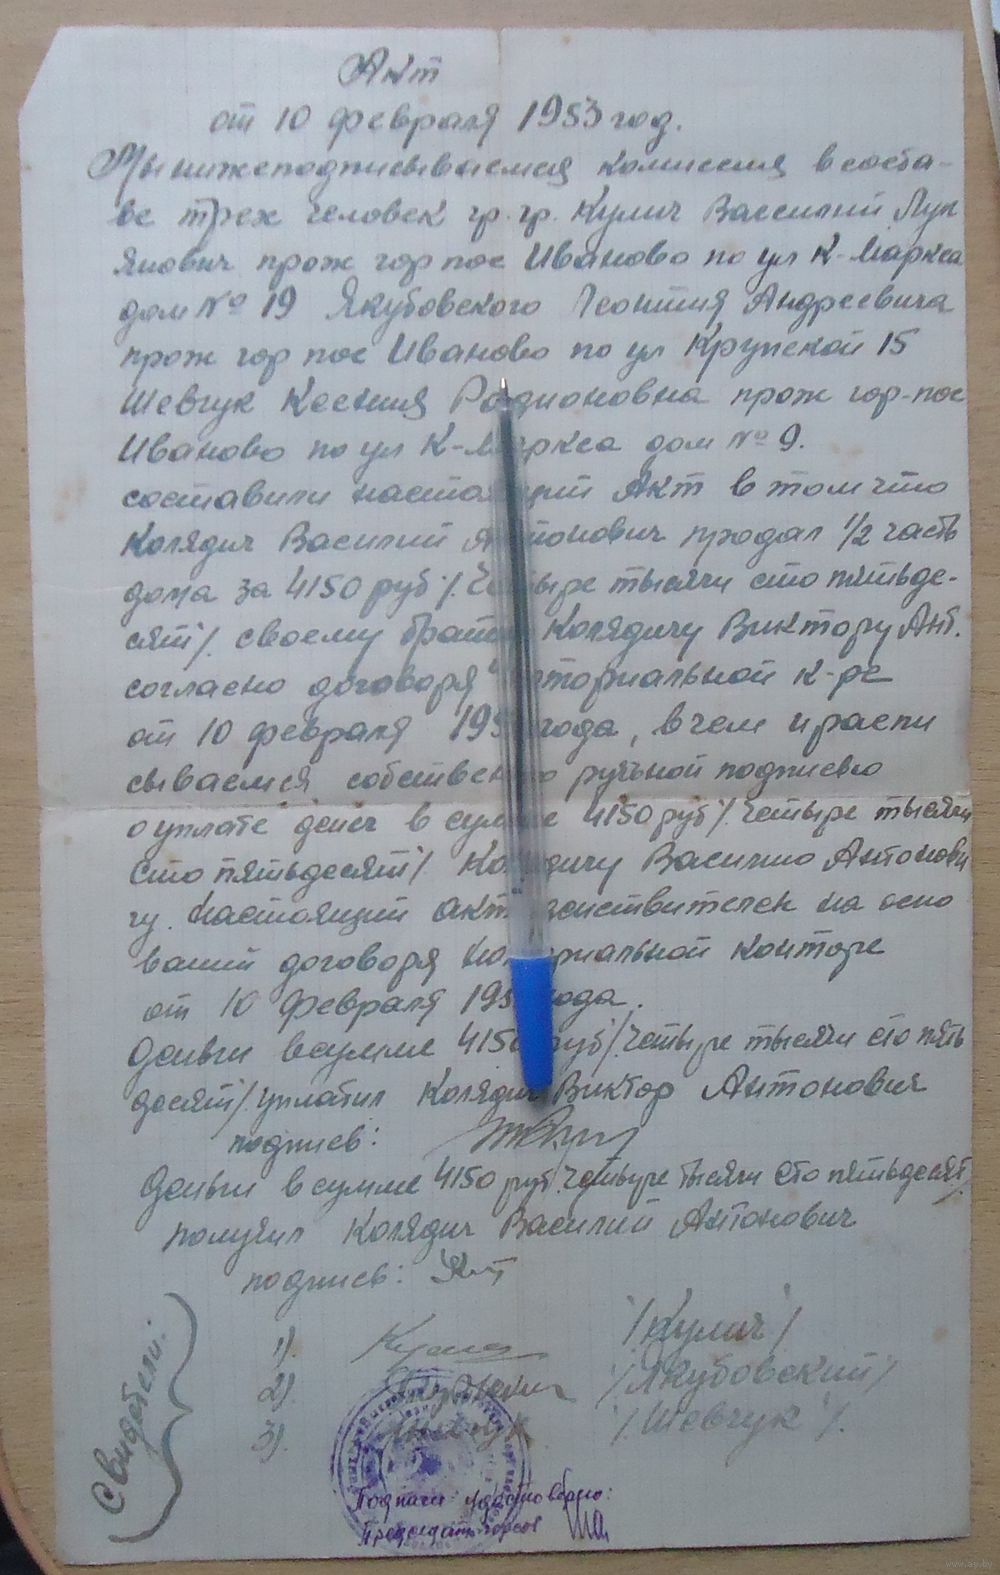 Акт
от 10 февраля 1953 год.
Мы нижеподписываемся комиссия в соста-
ве трех человек гр. гр. Кулич Василий Лук
янович прож гор пос Иваново по ул К-Маркса
дом № 19 Якубовского Леонтия Андреевича
прож гор пос Иваново по ул Крупской 15
Шевчук Ксения Родионовна прож гор-пос
Иваново по ул К-Маркса дом № 9.
составили настоящий Акт в том что
Колядич Василий Антонович продал 1/2 часть
дома за 4150 руб /. Четыре тысячи сто пятьде-
сят/. своему брату Колядичу Виктору Ант.
согласно договора ноториальной к-ре
от 10 февраля 1953 года, в чем и распи
сываемся собственно ручьной подписью
о уплате денег в сумме 4150 руб/. Четыре тысячи
сто пятьдесят/ Колядичу Василию Антонови
чу. Настоящий акт действителен на осно
ваний договоря ноториальной конторе
от 10 февраля 1953 года.
Деньги в сумме 4150 руб/. Четыре тысячи сто пять
десят/ уплатил Колядич Виктор Антонович
подписв:
Деньги в сумме 4150 руб. Четыре тысячи сто пятьдесят/.
получил Колядич Василий Антонович
подписв:
Свидетели:
1). /Кулич/
2). /Якубовский/
3). /Шевчук/.
Подписи удостоверяю:
www.ay.by